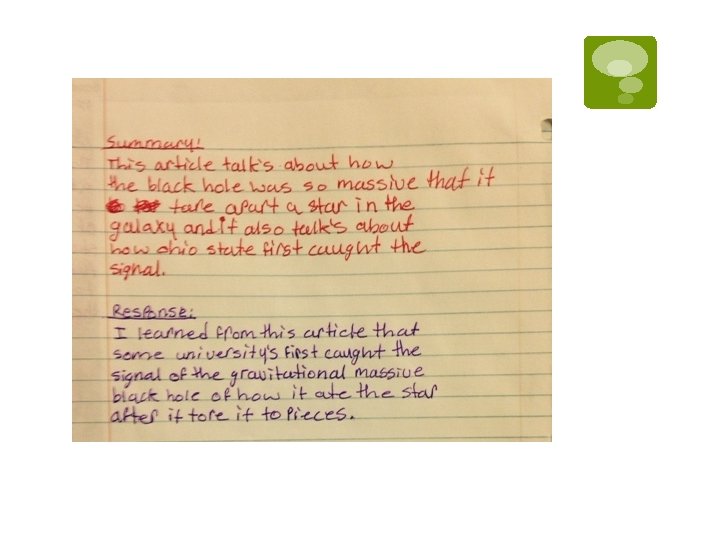 Summary:
This article talk's about how
the black hole was so massive that it
tare apart a star in the
galaxy and it also talk's about
how ohio state first caught the
signal.
Response:
I learned from this article that
some university's first caught the
signal of the gravitational massive
black hole of how it ate the star
after it tore it to pieces.